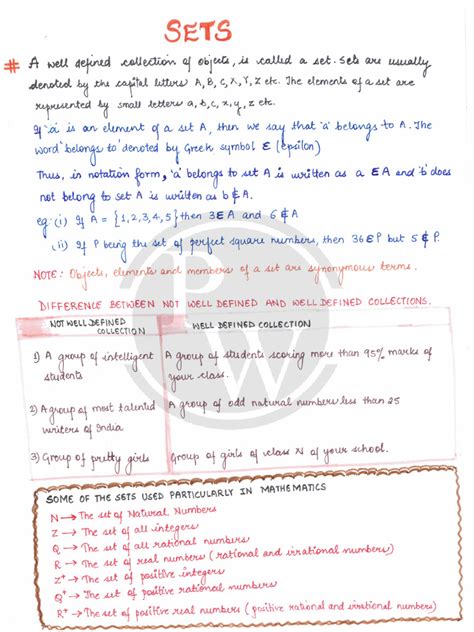 SETS
# A well defined collection of objects, is called a set. Sets are usually
denoted by the capital letters A, B, C, X, Y, Z etc. The elements of a set are
represented by small letters a, b, c, x, y, z etc.
If 'a' is an element of a set A, then we say that 'a' belongs to A. The
word 'belongs to' denoted by Greek symbol Ɛ (epsilon)
Thus, in notation form, 'a' belongs to set A is written as a Ɛ A and 'b' does
not belong to set A is written as b ∉ A.
eg: (i) If A = {1,2,3,4,5} then 3 Ɛ A and 6 ∉ A
(ii) If P being the set of perfect square numbers, then 36 Ɛ P but 5 ∉ P.
NOTE: Objects, elements and members of a set are synonymous terms.
DIFFERENCE BETWEEN NOT WELL DEFINED AND WELL DEFINED COLLECTIONS.
NOT WELL DEFINED COLLECTION
WELL DEFINED COLLECTION
1) A group of intelligent students
A group of students scoring more than 95% marks of
your class.
2) A group of most talented writers of India
A group of odd natural numbers less than 25
3) Group of pretty girls
Group of girls of class XI of your school.
SOME OF THE SETS USED PARTICULARLY IN MATHEMATICS
N → The set of Natural Numbers
Z → The set of all integers
Q → The set of all rational numbers
R → The set of real numbers (rational and irrational numbers)
Z⁺ → The set of positive integers
Q⁺ → The set of positive rational numbers
R⁺ → The set of positive real numbers (positive rational and irrational numbers)
PW